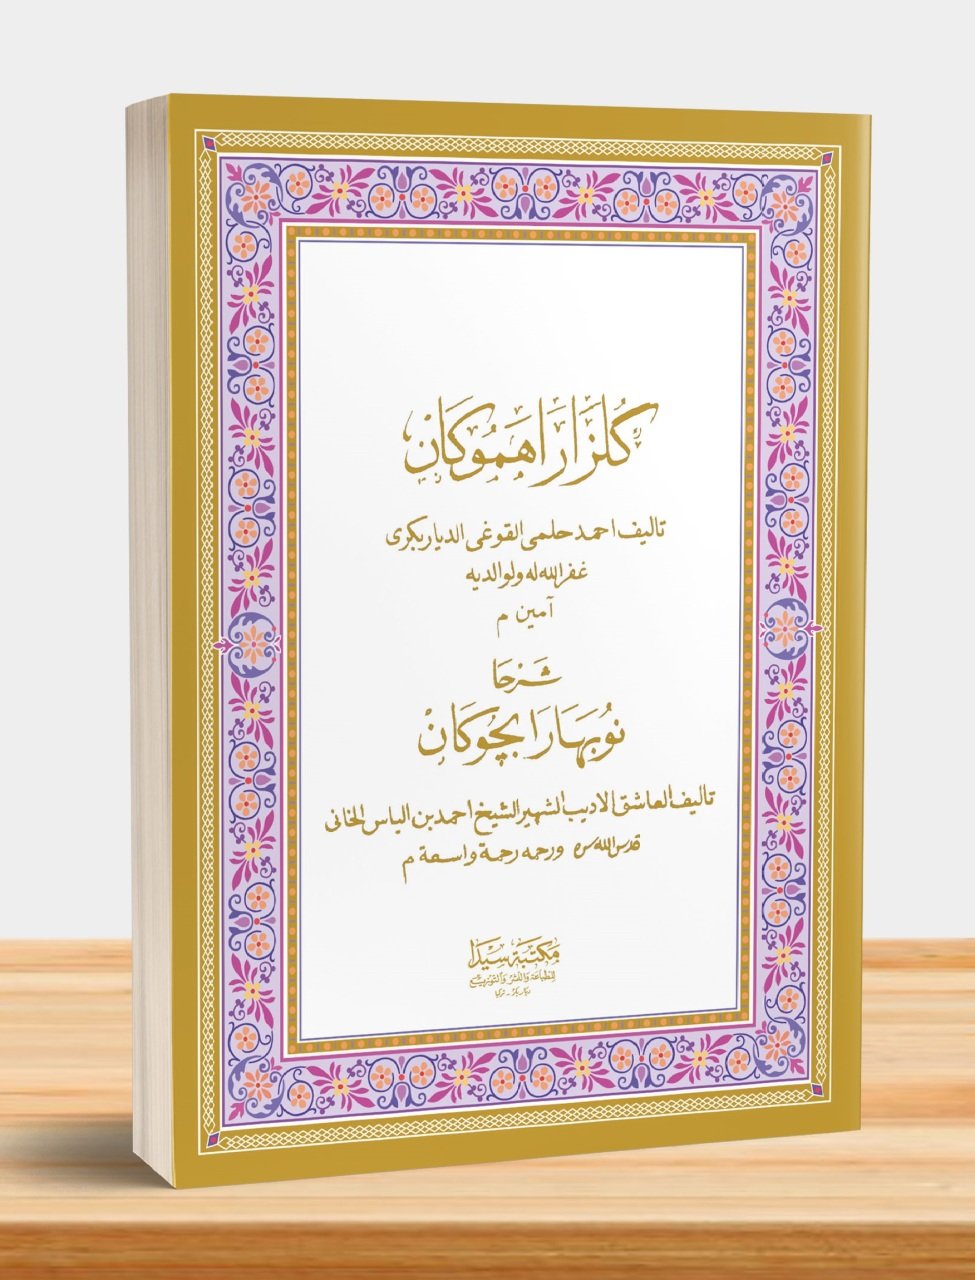 كُلزَارَا هَمُوكَانْ
تاليف احمد حلمى القوغى الدياربكرى
غفر الله له ولوالديه
آمين م
شَرْحَا
نُوبِهَارَا بِچُوكَانْ
تاليف العاشق الاديب الشهير الشيخ احمد بن الياس الخانى
قدس الله سره ورحمه رحمة واسعة م
مكتبة سيدا
للطباعة والنشر والتوزيع
ديار بكر - تركيا